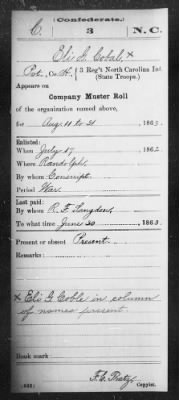 (Confederate.)
C. 3 N.C.
Eli G. Cobal, x
Pvt., Co. H, 3 Reg't North Carolina Inf.
(State Troops.)
Appears on
Company Muster Roll
of the organization named above,
for Aug 11 to 31, 1863.
Enlisted:
When July 17, 1862
Where Randolph
By whom Conscript
Period War
Last paid:
By whom R. F. Langdon
To what time June 30, 1863.
Present or absent Present.
Remarks:
x Eli G. Coble in column
of names present.
Book mark:
F. E. Pratz
Copyist.